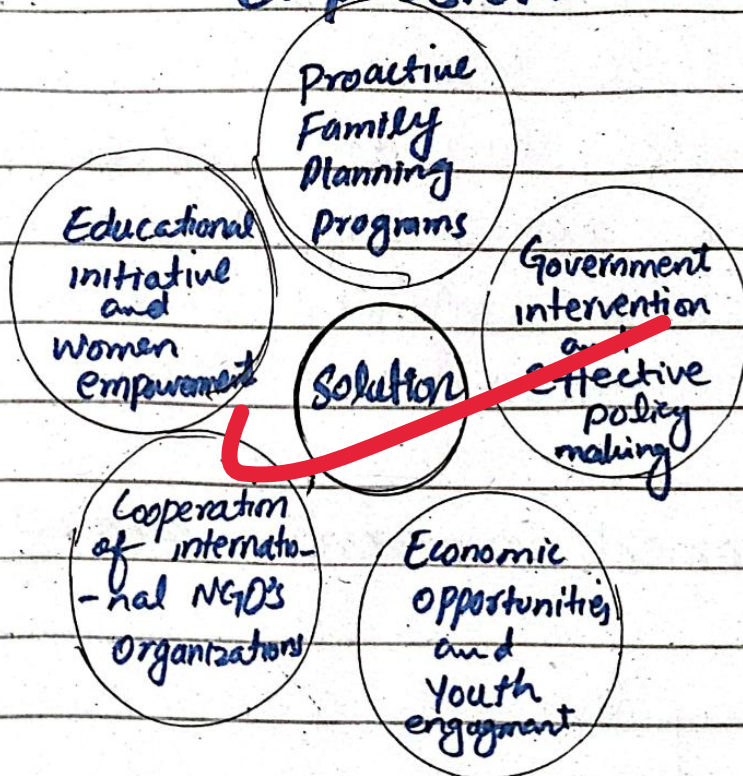 Proactive
Family
Planning
programs
Educational
initiative
and
Women
empowerment
Government
intervention
and
Effective
policy
making
Solution
Cooperation
of internatio-
-nal NGO's
Organizations
Economic
opportunities
and
Youth
engagment